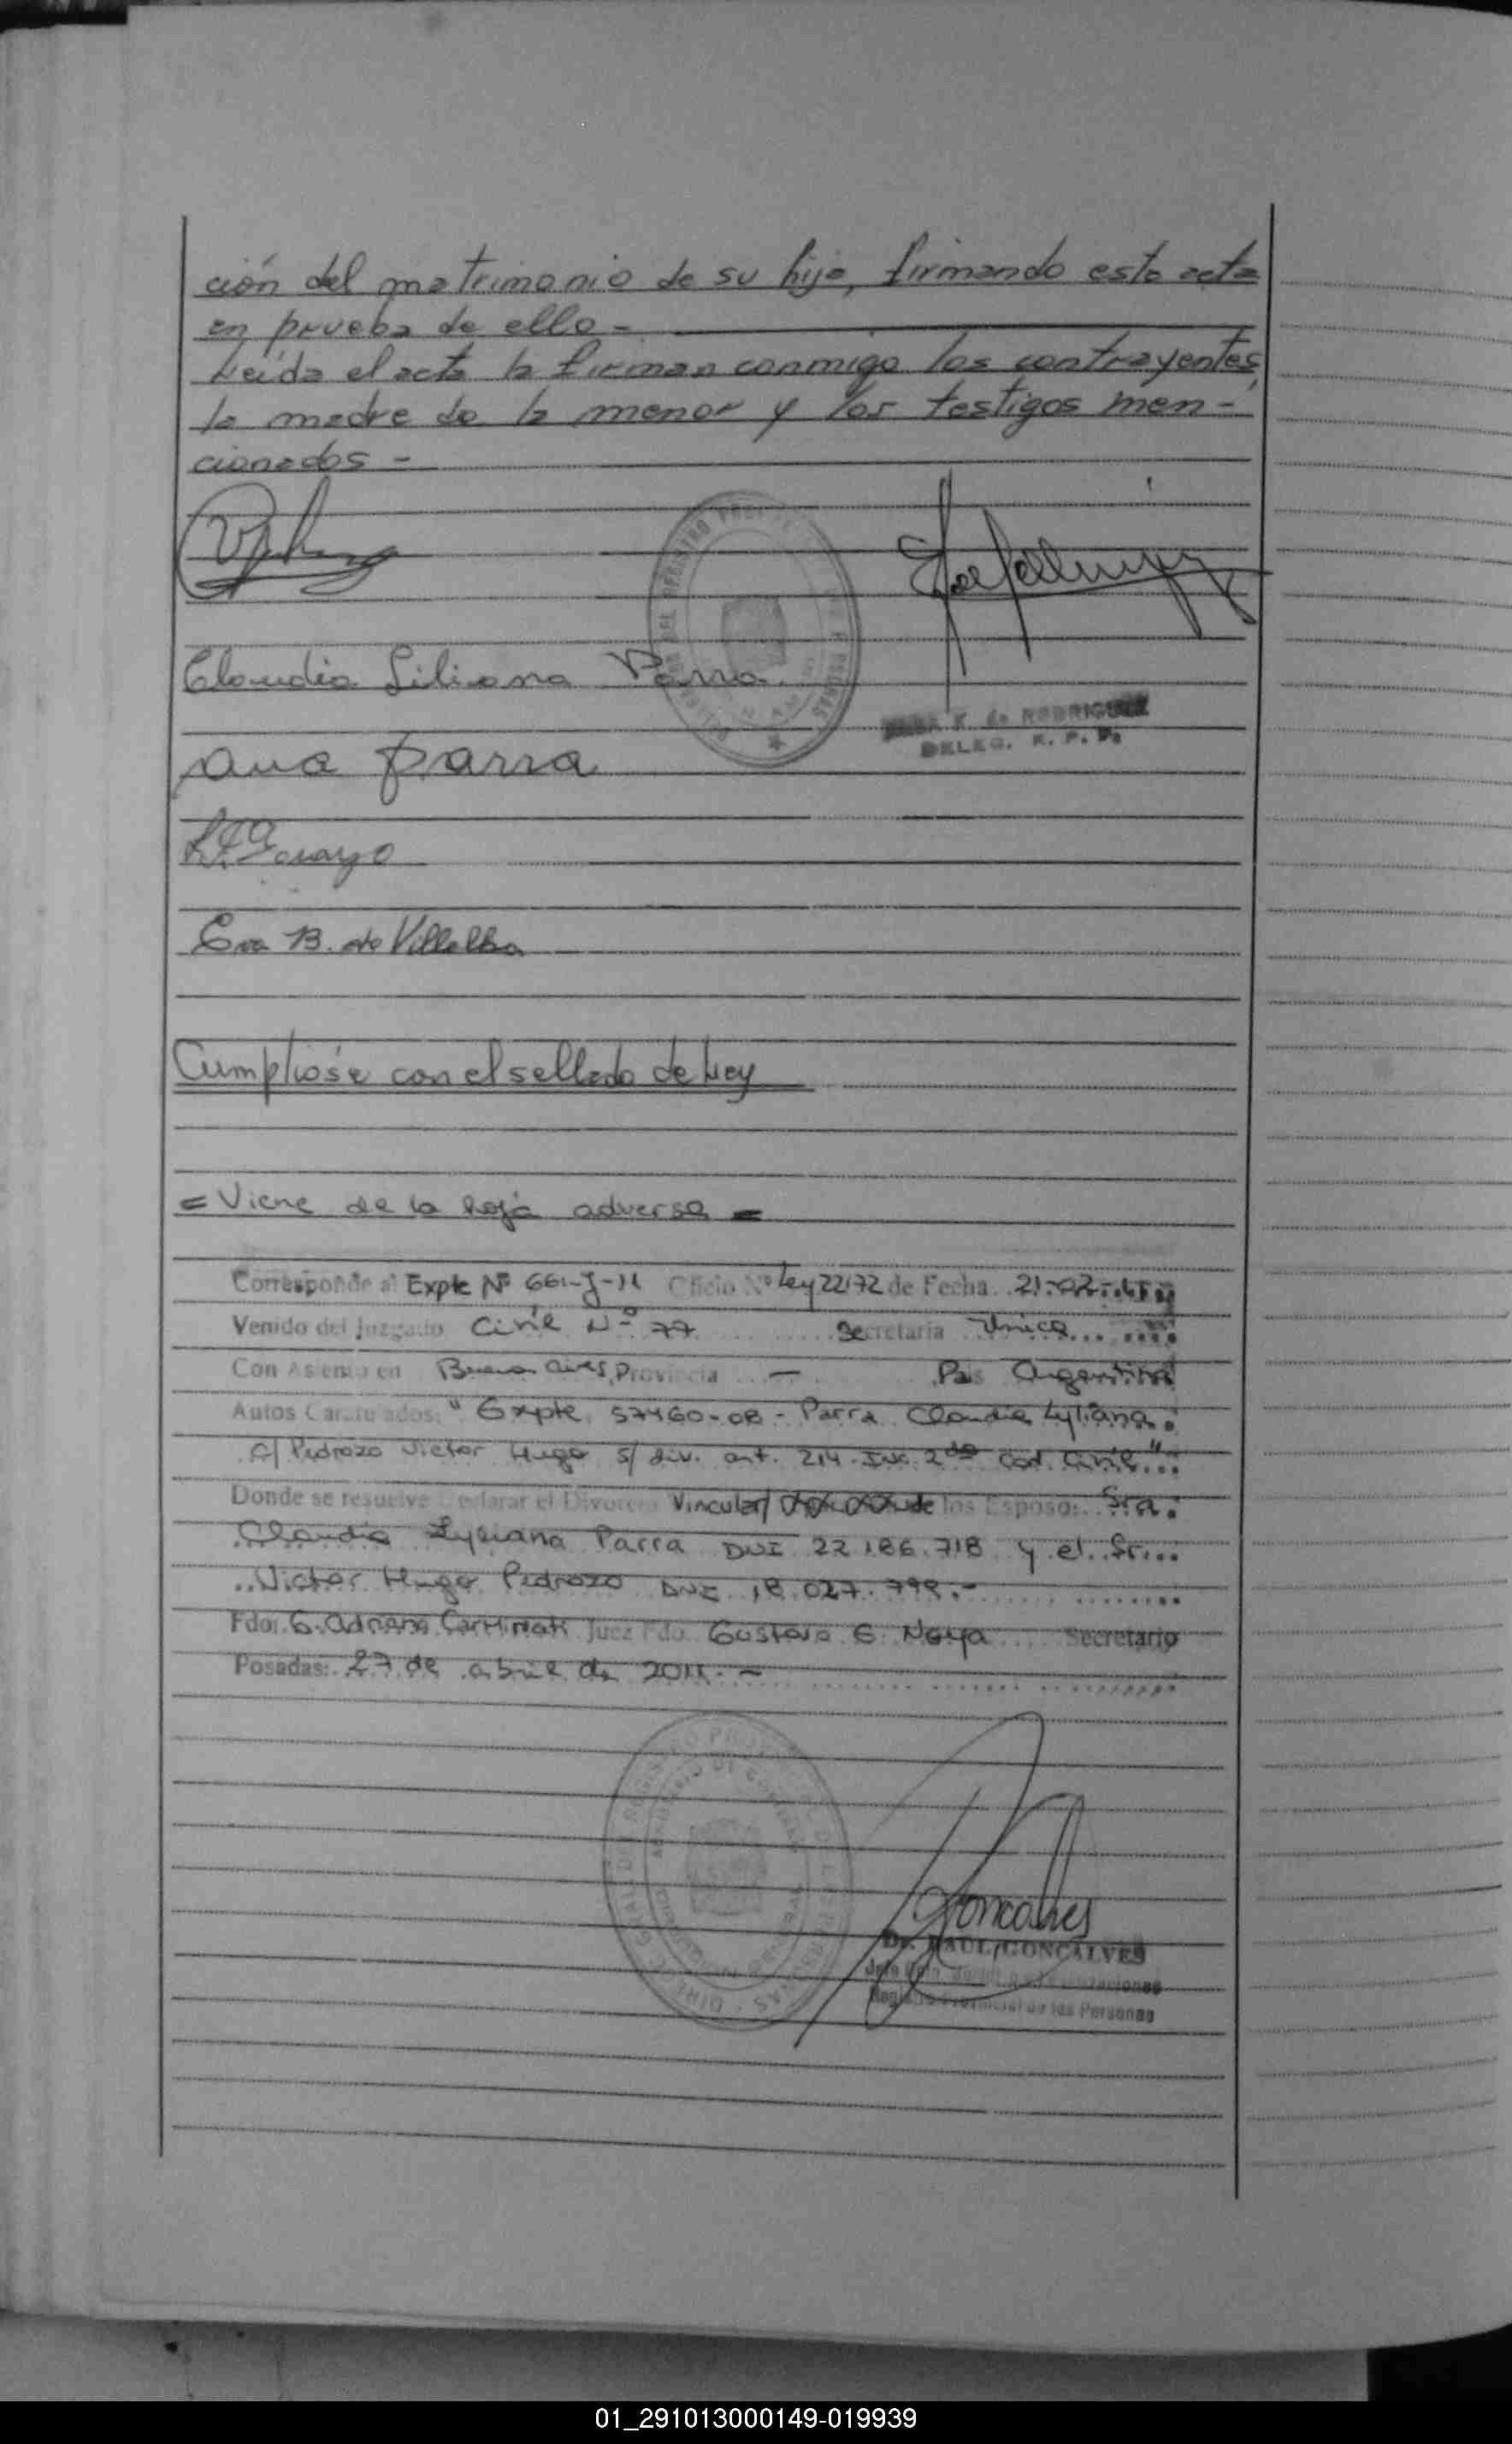 ción del matrimonio de su hija, firmando este acta
en prueba de ello -
Leída el acta la firman conmigo los contrayentes,
la madre de la menor y los testigos men-
cionados -
Claudia Liliana Parra
Ana Parra
Eva B. de Villalba
K. de RODRIGUEZ
DELEG. R. P. P.
Cumplióse con el sellado de Ley
= Viene de la hoja adversa =
Corresponde al Expte Nº 661-J-11 Oficio Nº Ley 22172 de Fecha 21-02-11
Venido del Juzgado Civil Nº 77 Secretaria Unica
Con Asiento en Buenos Aires, Provincia - Pais Argentina
Autos Caratulados: " Expte 57460-08 - Parra Claudia Lyliana
c/ Pedrozo Victor Hugo s/ div. art. 214 Inc. 2do Cod. Civil"
Donde se resuelve Declarar el Divorcio Vincular/ de los Esposos: Sra.
Claudia Lyliana Parra DNI 22.186.718 y el Sr.
Victor Hugo Pedrozo DNI 18.027.798.-
Fdo: G. Adriana Juez Fdo. Gustavo G. Noya Secretario
Posadas: 27 de abril de 2011.-
Goncalves
Dr. RAUL GONCALVES
Registro Provincial de las Personas
01_291013000149-019939